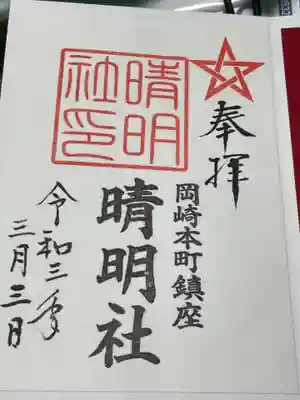 奉拝
岡崎本町鎮座
晴明社印
晴明社
令和三年
三月三日